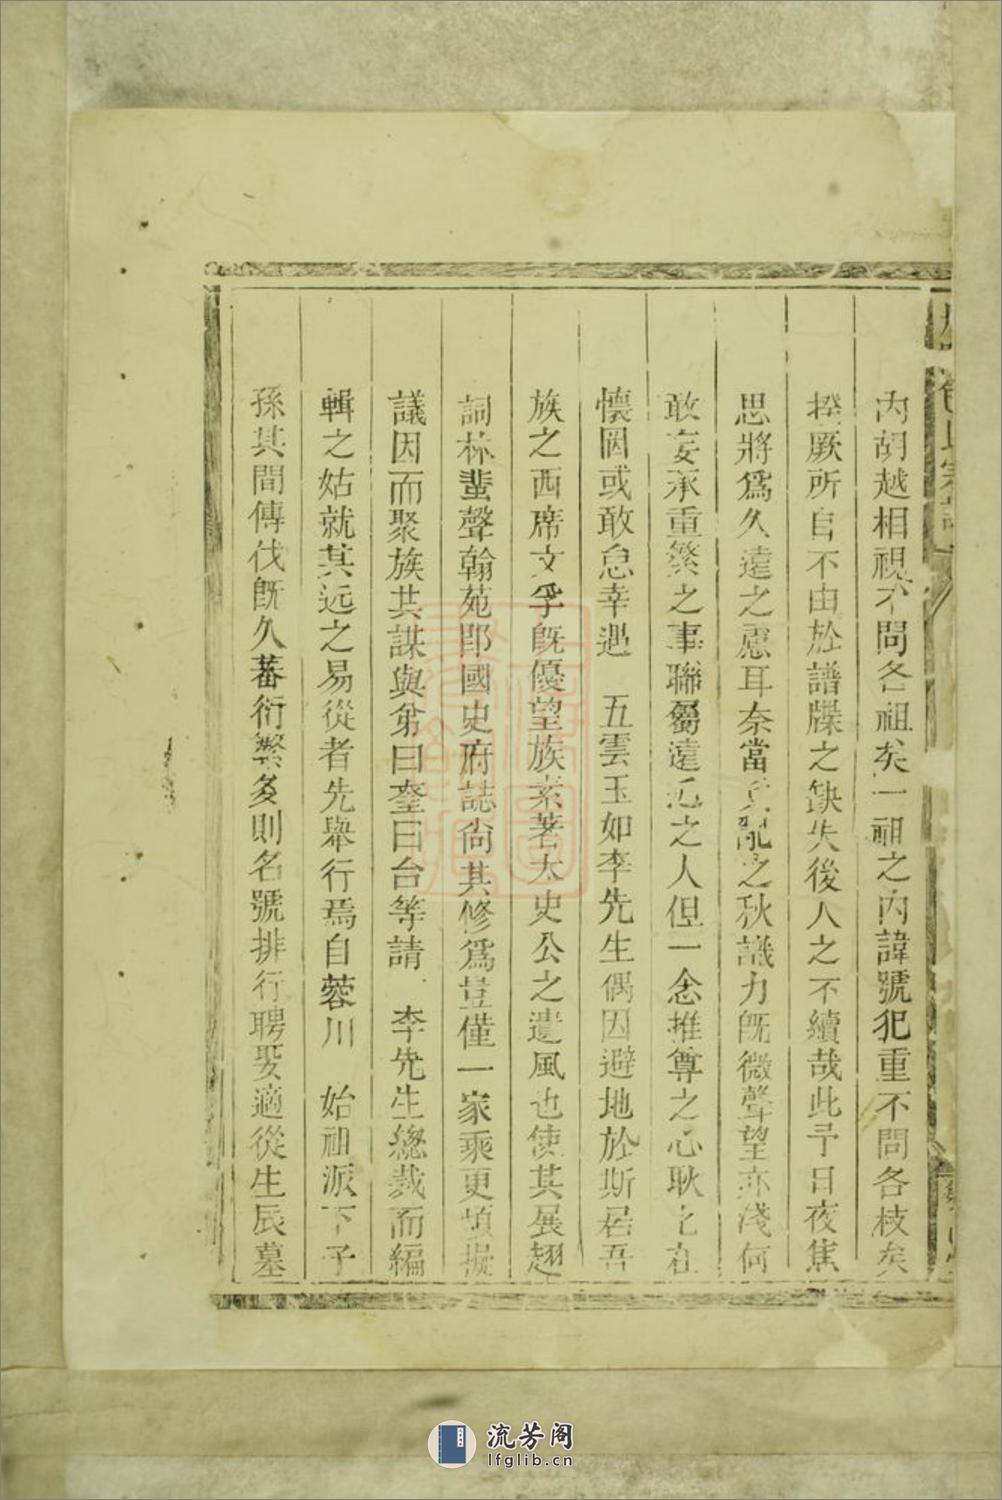 內胡越相視不問各祖矣一祖之內諱號犯重不問各枝矣
揆厥所自不由於譜牒之缺失後人之不續哉此予日夜焦
思將爲久遠之慮耳奈當亂之秋識力旣微聲望亦淺何
敢妄承重繁之事聯屬遠近之人但一念推尊之心耿之在
懷罔或敢怠幸遇 五雲玉如李先生偶因避地於斯居吾
族之西席文孚旣優望族素著太史公之遺風也使其展翅
詞林蜚聲翰苑郎國史府誌尙其修爲豈僅一家乘更煩擬
議因而聚族共謀與弟曰奎曰台等請 李先生總裁而編
輯之姑就其远之易從者先舉行焉自蓉川 始祖派下子
孫其間傳伐旣久蕃衍繁多則名號排行聘娶適從生辰墓
流芳阁
lfglib.cn